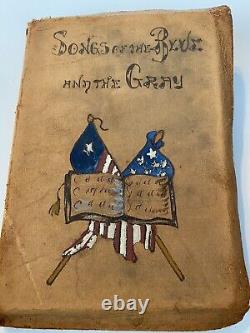 SONGS OF THE BLUE
AND THE GRAY